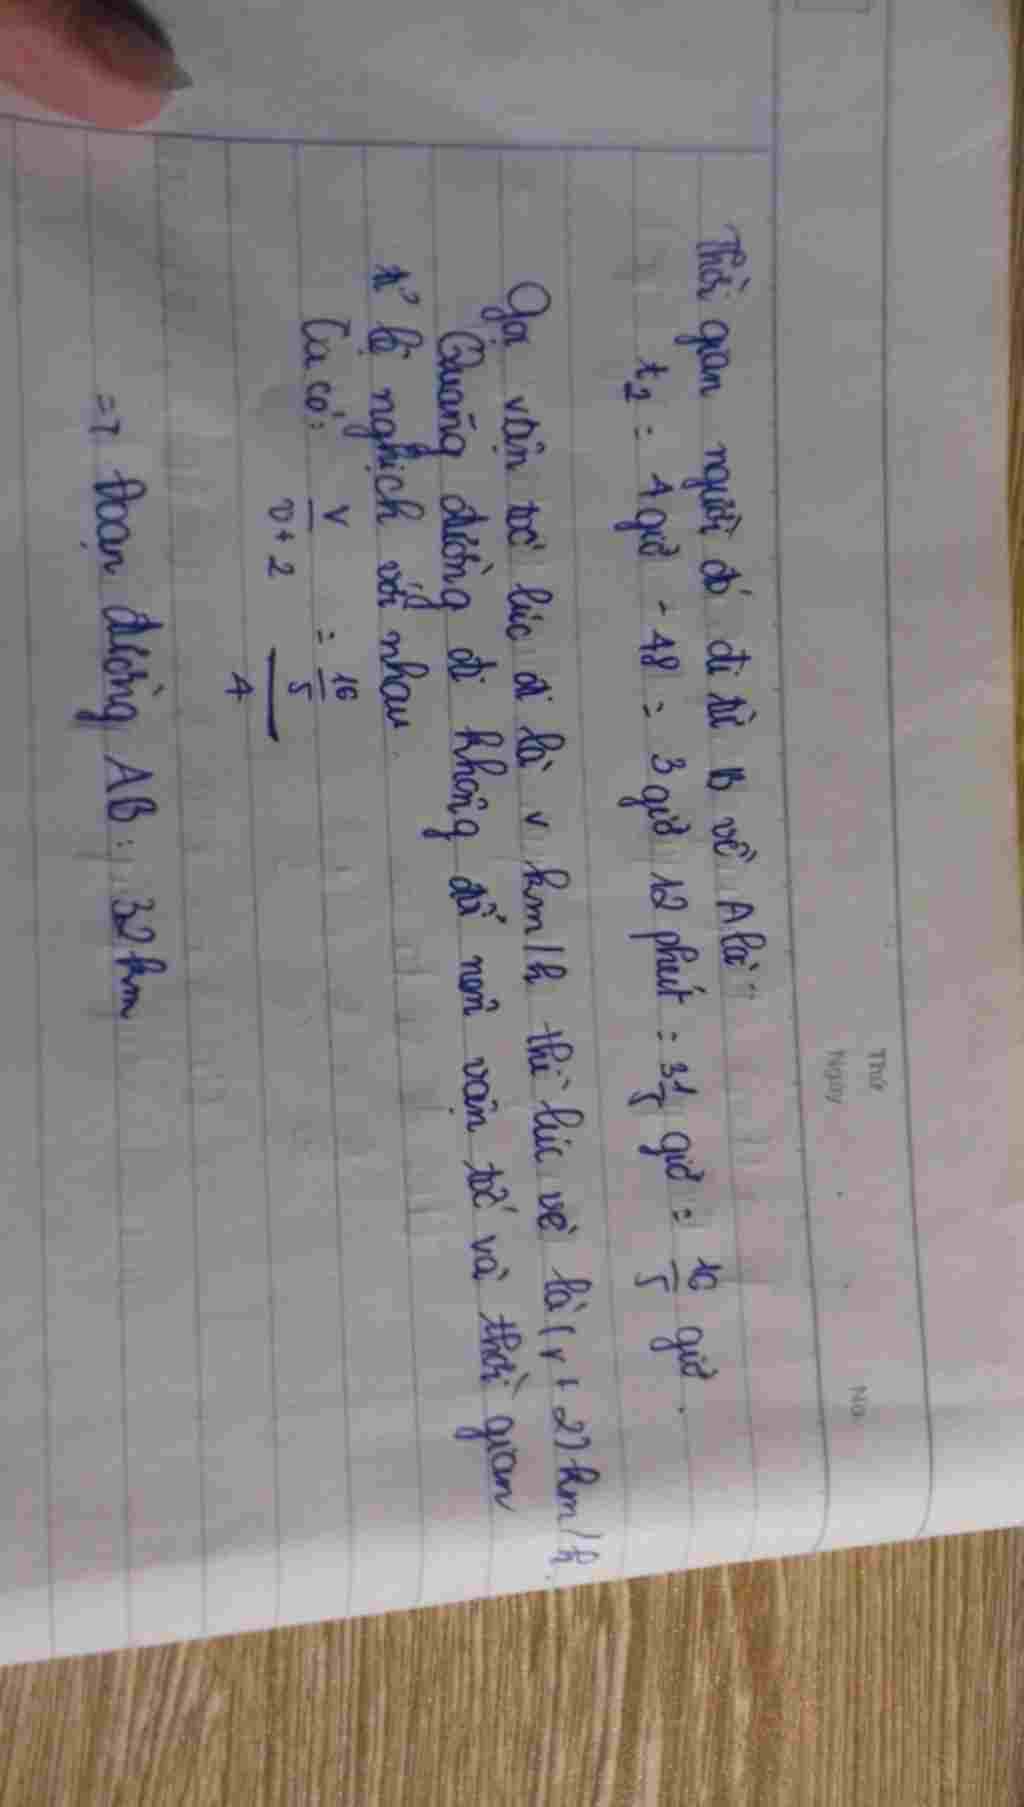 Thứ
Ngày
No.
Thời gian người đó đi từ B về A là:
t2 = 4 giờ - 48 = 3 giờ 12 phút = 3 1/5 giờ = 16/5 giờ.
Gọi vận tốc lúc đi là v km/h thì lúc về là (v + 2) km/h.
Quãng đường đi không đổi nên vận tốc và thời gian
tỉ lệ nghịch với nhau.
Ta có: v/(v+2) = (16/5)/4
=> Đoạn đường AB: 32 km